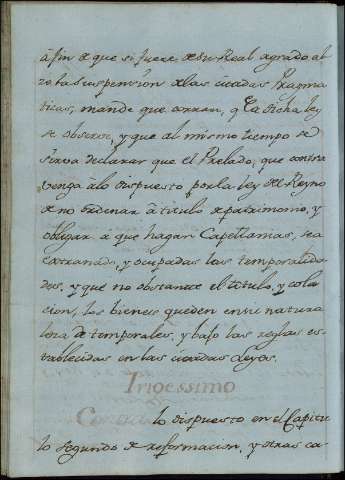 áfin de que si fuere de su Real agrado al
ze la suspension de las citadas Pragma
ticas, mande que corran, q.e la dicha ley
se observe, y que al mismo tiempo se
sirva declarar que el Prelado, que contra
venga álo dispuesto por la ley del Reyno
de no ordenar á titulo de patrimonio, y
obligar á que hagan Capellanias, sea
extrañado, y ocupadas las temporalida
des, y que no obstante el titulo, y cola
cion, los bienes queden en su natura
leza de temporales, y bajo las reglas es-
tablecidas en las citadas Leyes.
Trigessimo
Contra lo dispuesto en el Capitu
lo segundo de reformacion, y otras ca-